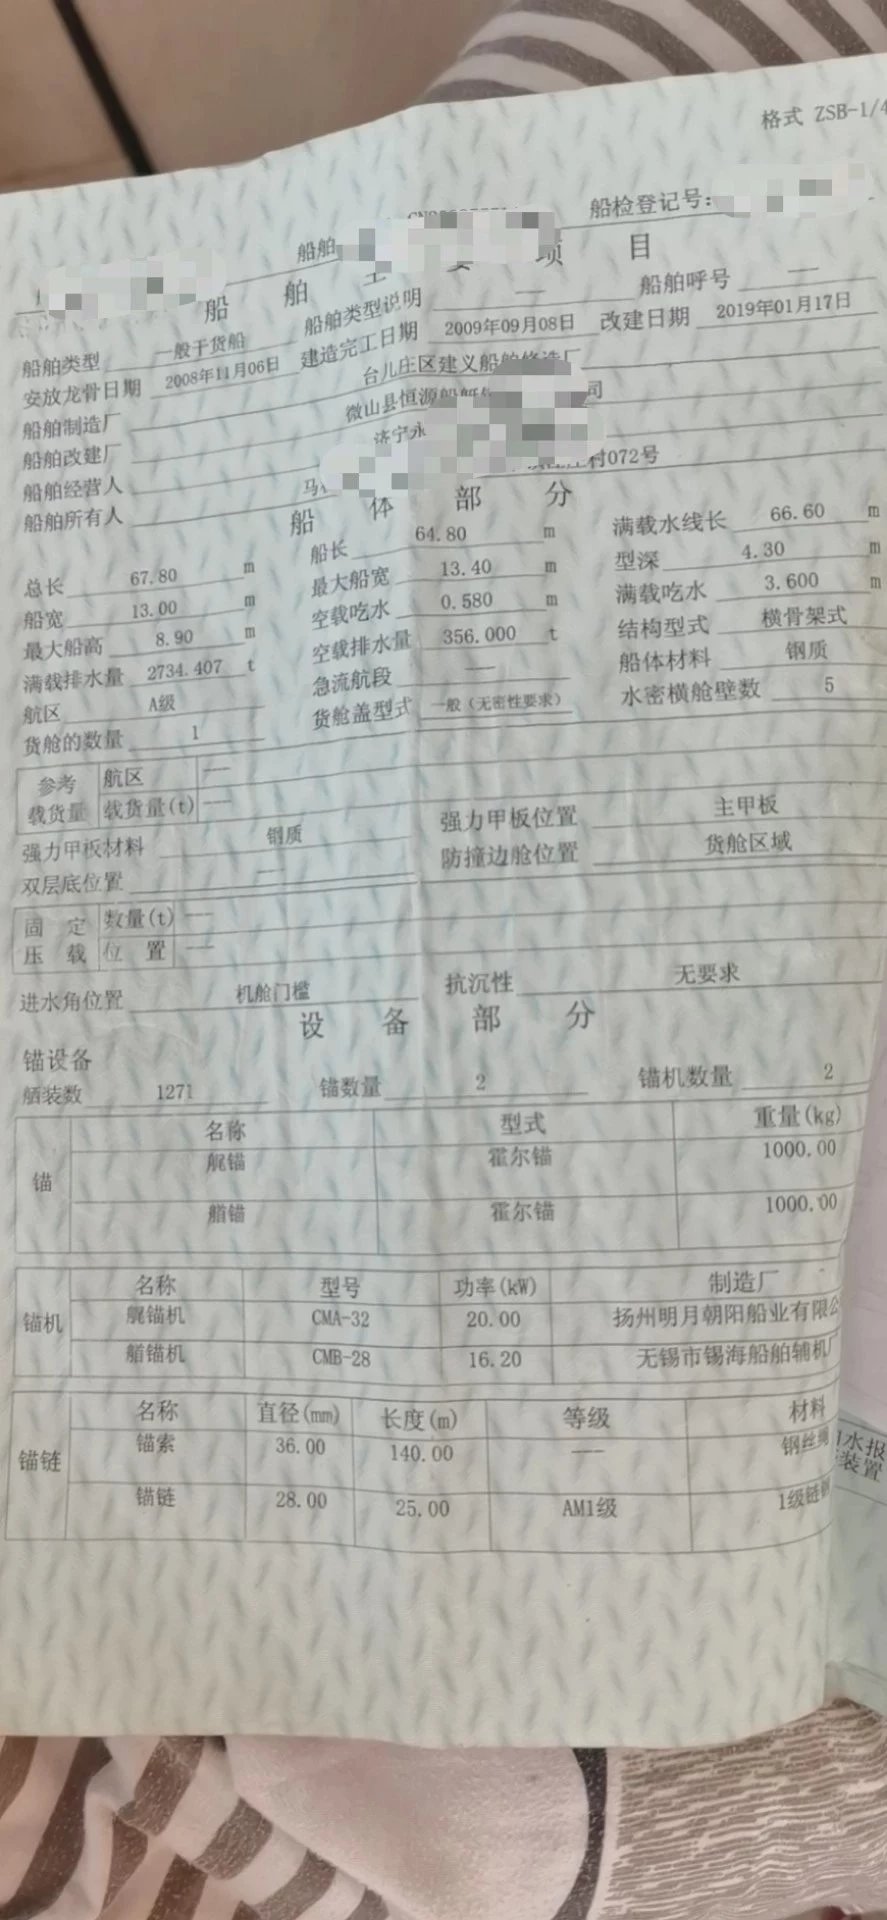 格式 ZSB-1/4
船舶 船检登记号:
船舶主要项目
船舶类型 一般干货船 船舶类型说明 —— 船舶呼号 ——
安放龙骨日期 2008年11月06日 建造完工日期 2009年09月08日 改建日期 2019年01月17日
船舶制造厂 台儿庄区建义船舶修造厂
船舶改建厂 微山县恒源船艇 司
船舶经营人 济宁永
船舶所有人 马 村072号
船体部分
总长 67.80 m 船长 64.80 m 满载水线长 66.60 m
船宽 13.00 m 最大船宽 13.40 m 型深 4.30 m
最大船高 8.90 m 空载吃水 0.580 m 满载吃水 3.600 m
满载排水量 2734.407 t 空载排水量 356.000 t 结构型式 横骨架式
航区 A级 急流航段 —— 船体材料 钢质
货舱的数量 1 货舱盖型式 一般(无密性要求) 水密横舱壁数 5
参考 航区 ——
载货量 载货量(t) ——
强力甲板材料 钢质 强力甲板位置 主甲板
双层底位置 —— 防撞边舱位置 货舱区域
固定 数量(t) ——
压载 位置 ——
进水角位置 机舱门槛 抗沉性 无要求
设备部分
锚设备
舾装数 1271 锚数量 2 锚机数量 2
名称 型式 重量(kg)
锚 艉锚 霍尔锚 1000.00
艏锚 霍尔锚 1000.00
名称 型号 功率(kW) 制造厂
锚机 艉锚机 CMA-32 20.00 扬州明月朝阳船业有限公
艏锚机 CMB-28 16.20 无锡市锡海船舶辅机厂
名称 直径(mm) 长度(m) 等级 材料
锚链 锚索 36.00 140.00 —— 钢丝绳
锚链 28.00 25.00 AM1级 1级链钢
水报
装置